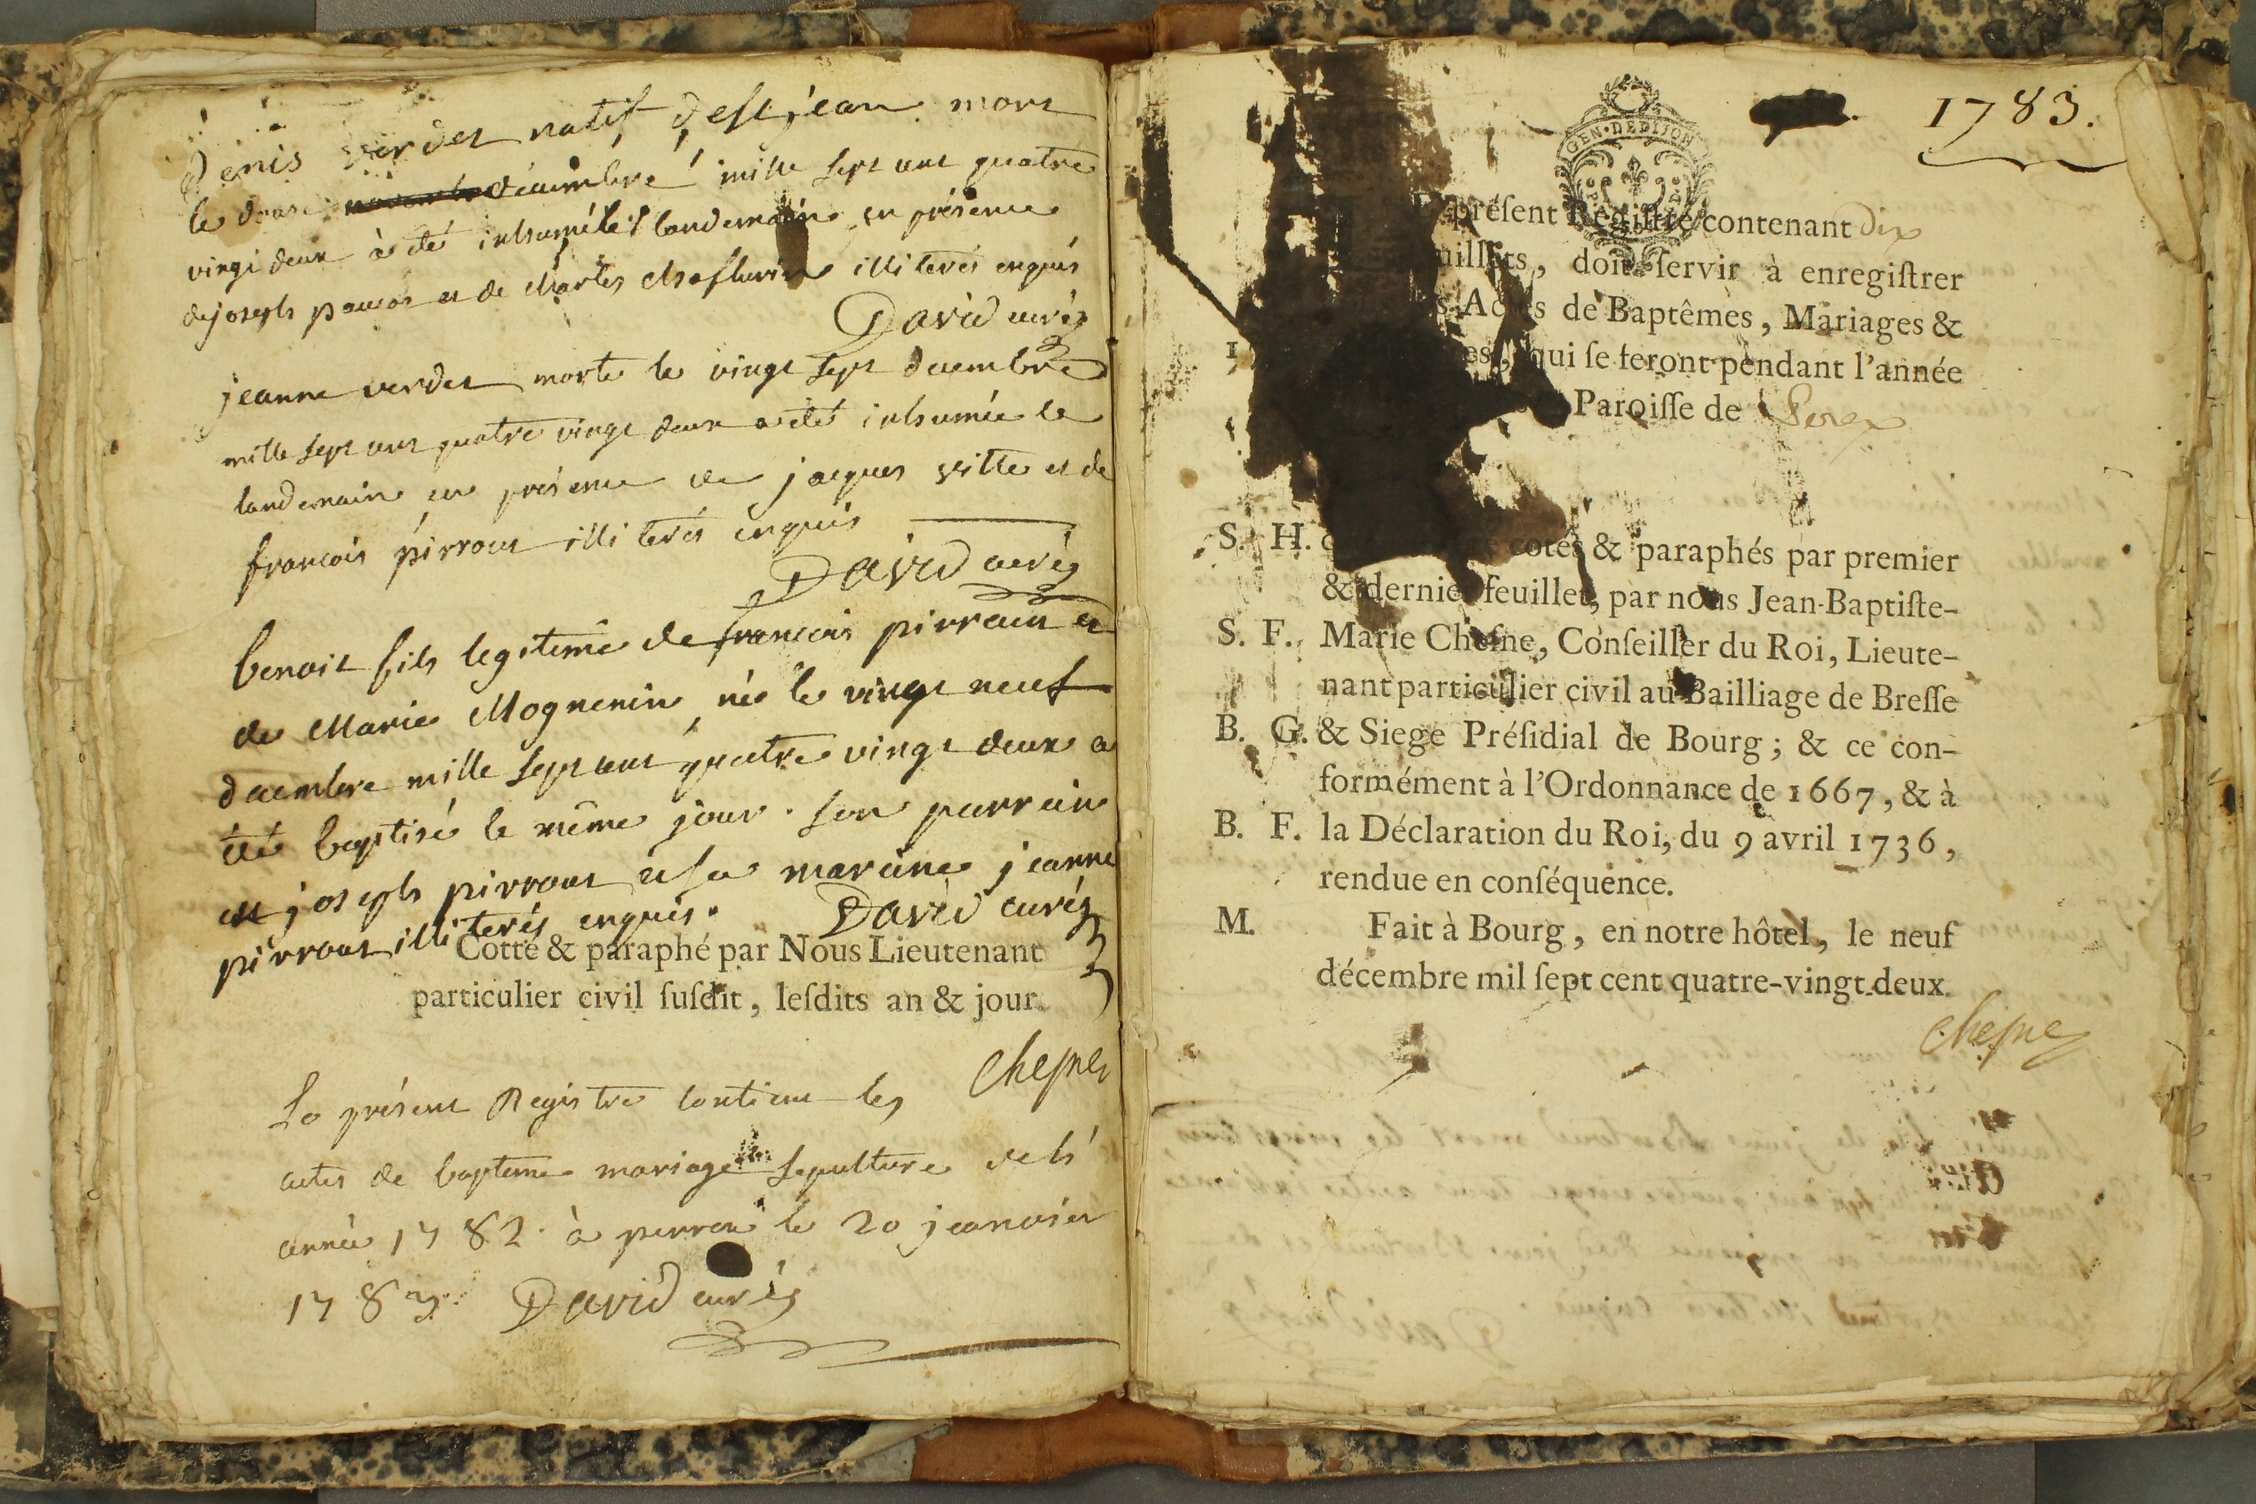 Denis verdet natif de st jean mort
le douze decembre mille sept cent quatre
vingt deux à été inhumé le landemain en présence
de joseph et de charles illiterés enquis
David curé
jeanne verdet morte le vingt sept decembre
mille sept cent quatre vingt deux a été inhumée le
landemain en présence de jacques vitte et de
francois pirrout illiterés enquis
David curé
benoit fils legiteme de francois pirrout et
de Marie Mognenin né le vingt neuf
decembre mille sept cent quatre vingt deux a
été baptisé le même jour. son parrain
est joseph pirrout et sa maraine jeanne
pirrout illiterés enquis. David curé
Cotté & paraphé par Nous Lieutenant
particulier civil ſuſdit, leſdits an & jour.
Cheſne
Le présent Registre contient les
actes de bapteme mariage sepulture de l'
année 1782. à perrex le 20 jeanvier
1783. David curé
1783.
GEN·DEDIJON
préſent Regiſtre contenant dix
uillets, doit ſervir à enregiſtrer
s Actes de Baptêmes, Mariages &
es, qui ſe feront pendant l'année
Paroiſſe de Perex
S. H. cotés & paraphés par premier
& dernier feuillet, par nous Jean-Baptiſte-
S. F. Marie Cheſne, Conſeiller du Roi, Lieute-
nant particulier civil au Bailliage de Breſſe
B. G. & Siege Préſidial de Bourg; & ce con-
formément à l'Ordonnance de 1667, & à
B. F. la Déclaration du Roi, du 9 avril 1736,
rendue en conſéquence.
M. Fait à Bourg, en notre hôtel, le neuf
décembre mil ſept cent quatre-vingt-deux.
Cheſne